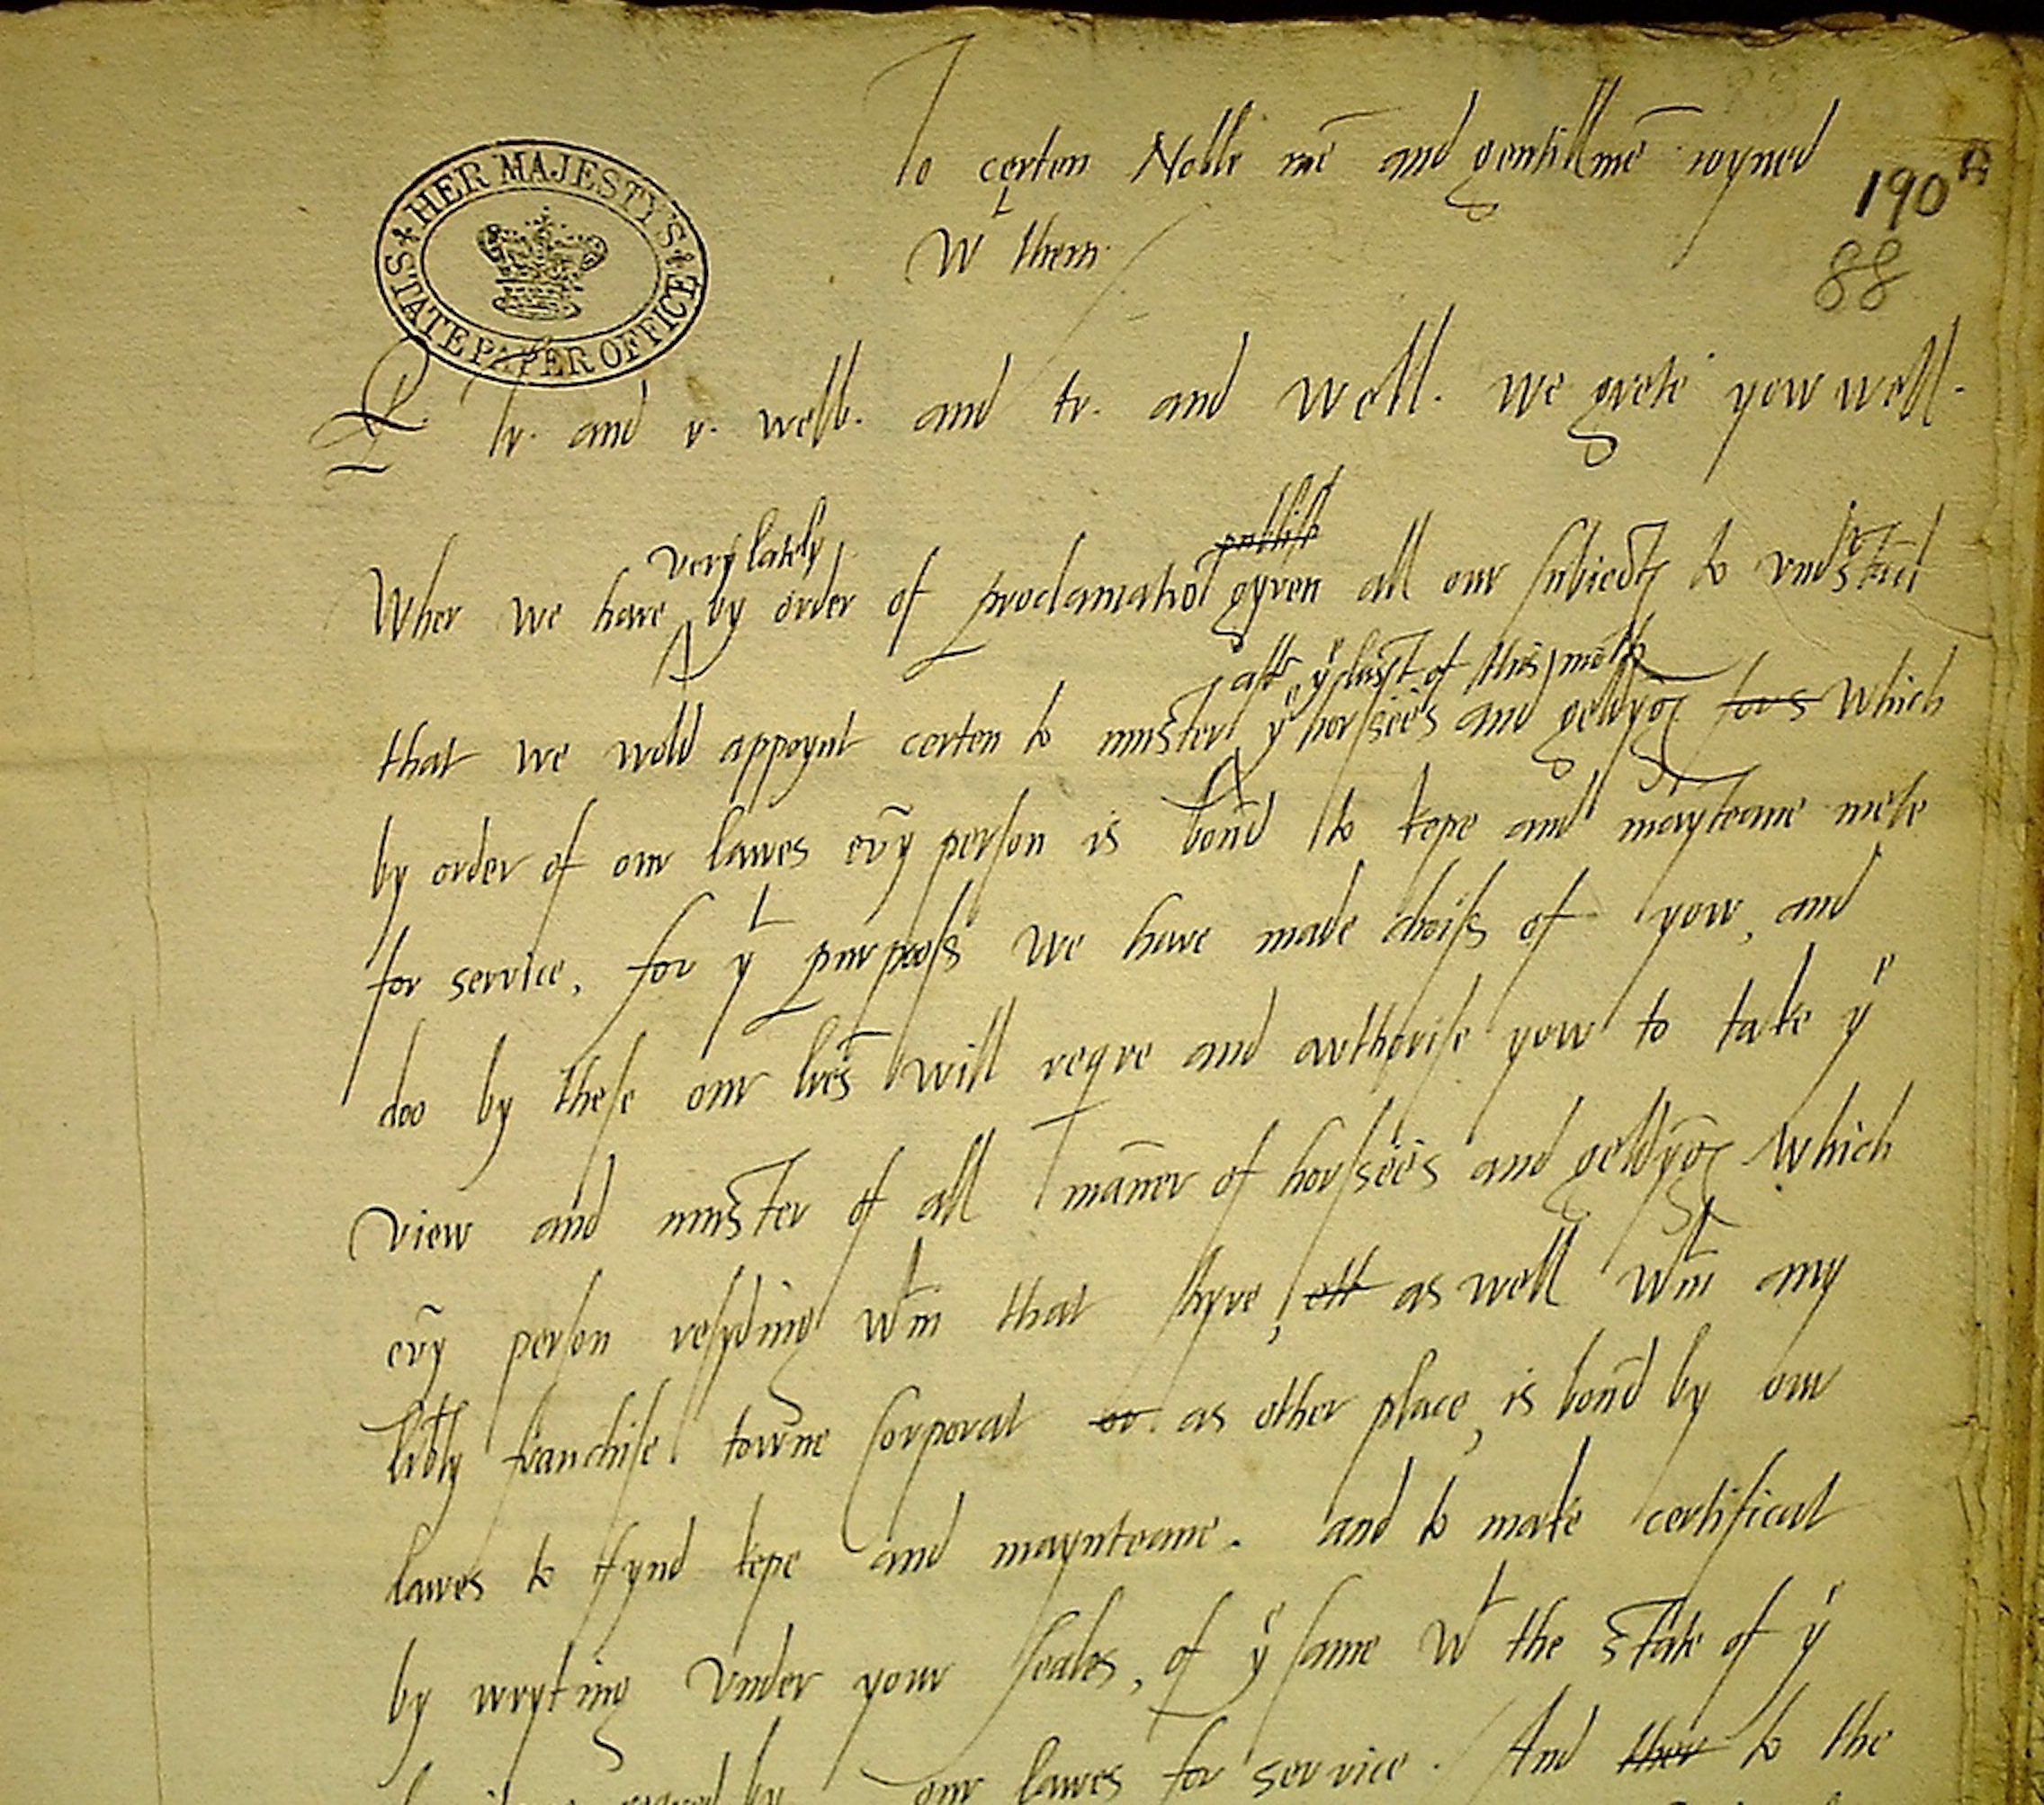 To certen Noble mē and gentillmē ioyned
190 A
wt them.
88
HER MAJESTY'S STATE PAPER OFFICE
R tr. and r. welb. and tr. and well. we grete yow well.
very lately publish
Wher we have by order of proclamatiō gyven all our subiects to
aftr ye last of this mōth
that we wold appoynt certen to muster ye horsees and geldyngs for s which
by order of our lawes ev̄y person is boūd to kepe and mayteane mete
for service, for yt purpooss we have made choiss of yow, and
doo by these our lr̄es will reqre and authorise yow to take ye
view and muster of all māner of horsees and geldyngs which
ev̄y person resyding wtin that shyre, as well wtin any
lib̄ty franchise towne corporat or as other place, is boūd by our
lawes to fynd kepe and maynteane. and to make certificat
by wryting under your seales, of ye same wt the state of ye
by our lawes for service. And ther to the